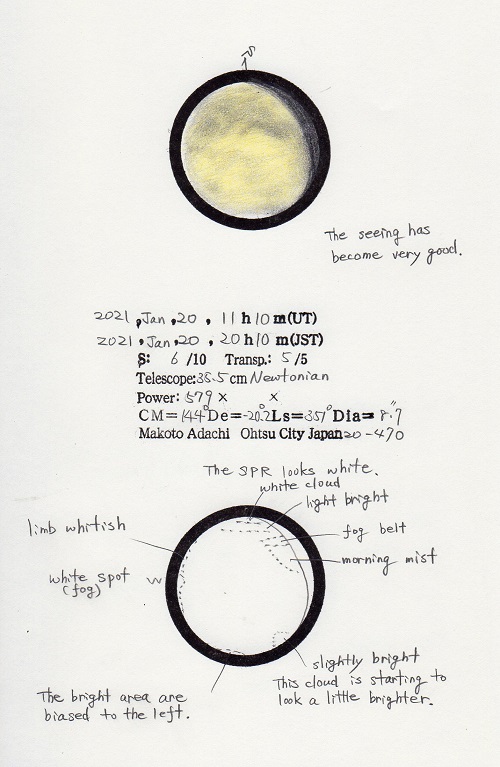 S
The seeing has
become very good.
2021, Jan, 20, 11 h 10 m(UT)
2021, Jan, 20, 20 h 10 m(JST)
S: 6 /10 Transp.: 5 /5
Telescope:35.5 cm Newtonian
Power: 579 × ×
CM=144° De=-20.2° Ls=351° Dia= 8.7"
Makoto Adachi Ohtsu City Japan 20-470
The SPR looks white.
white cloud
light bright
limb whitish
fog belt
morning mist
white spot w
(fog)
slightly bright
This cloud is starting to
look a little brighter.
The bright area are
biased to the left.